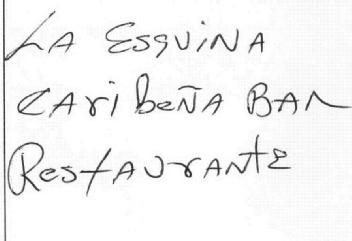 LA ESQUINA
CAriBeÑA BAR
RestAUrANtE